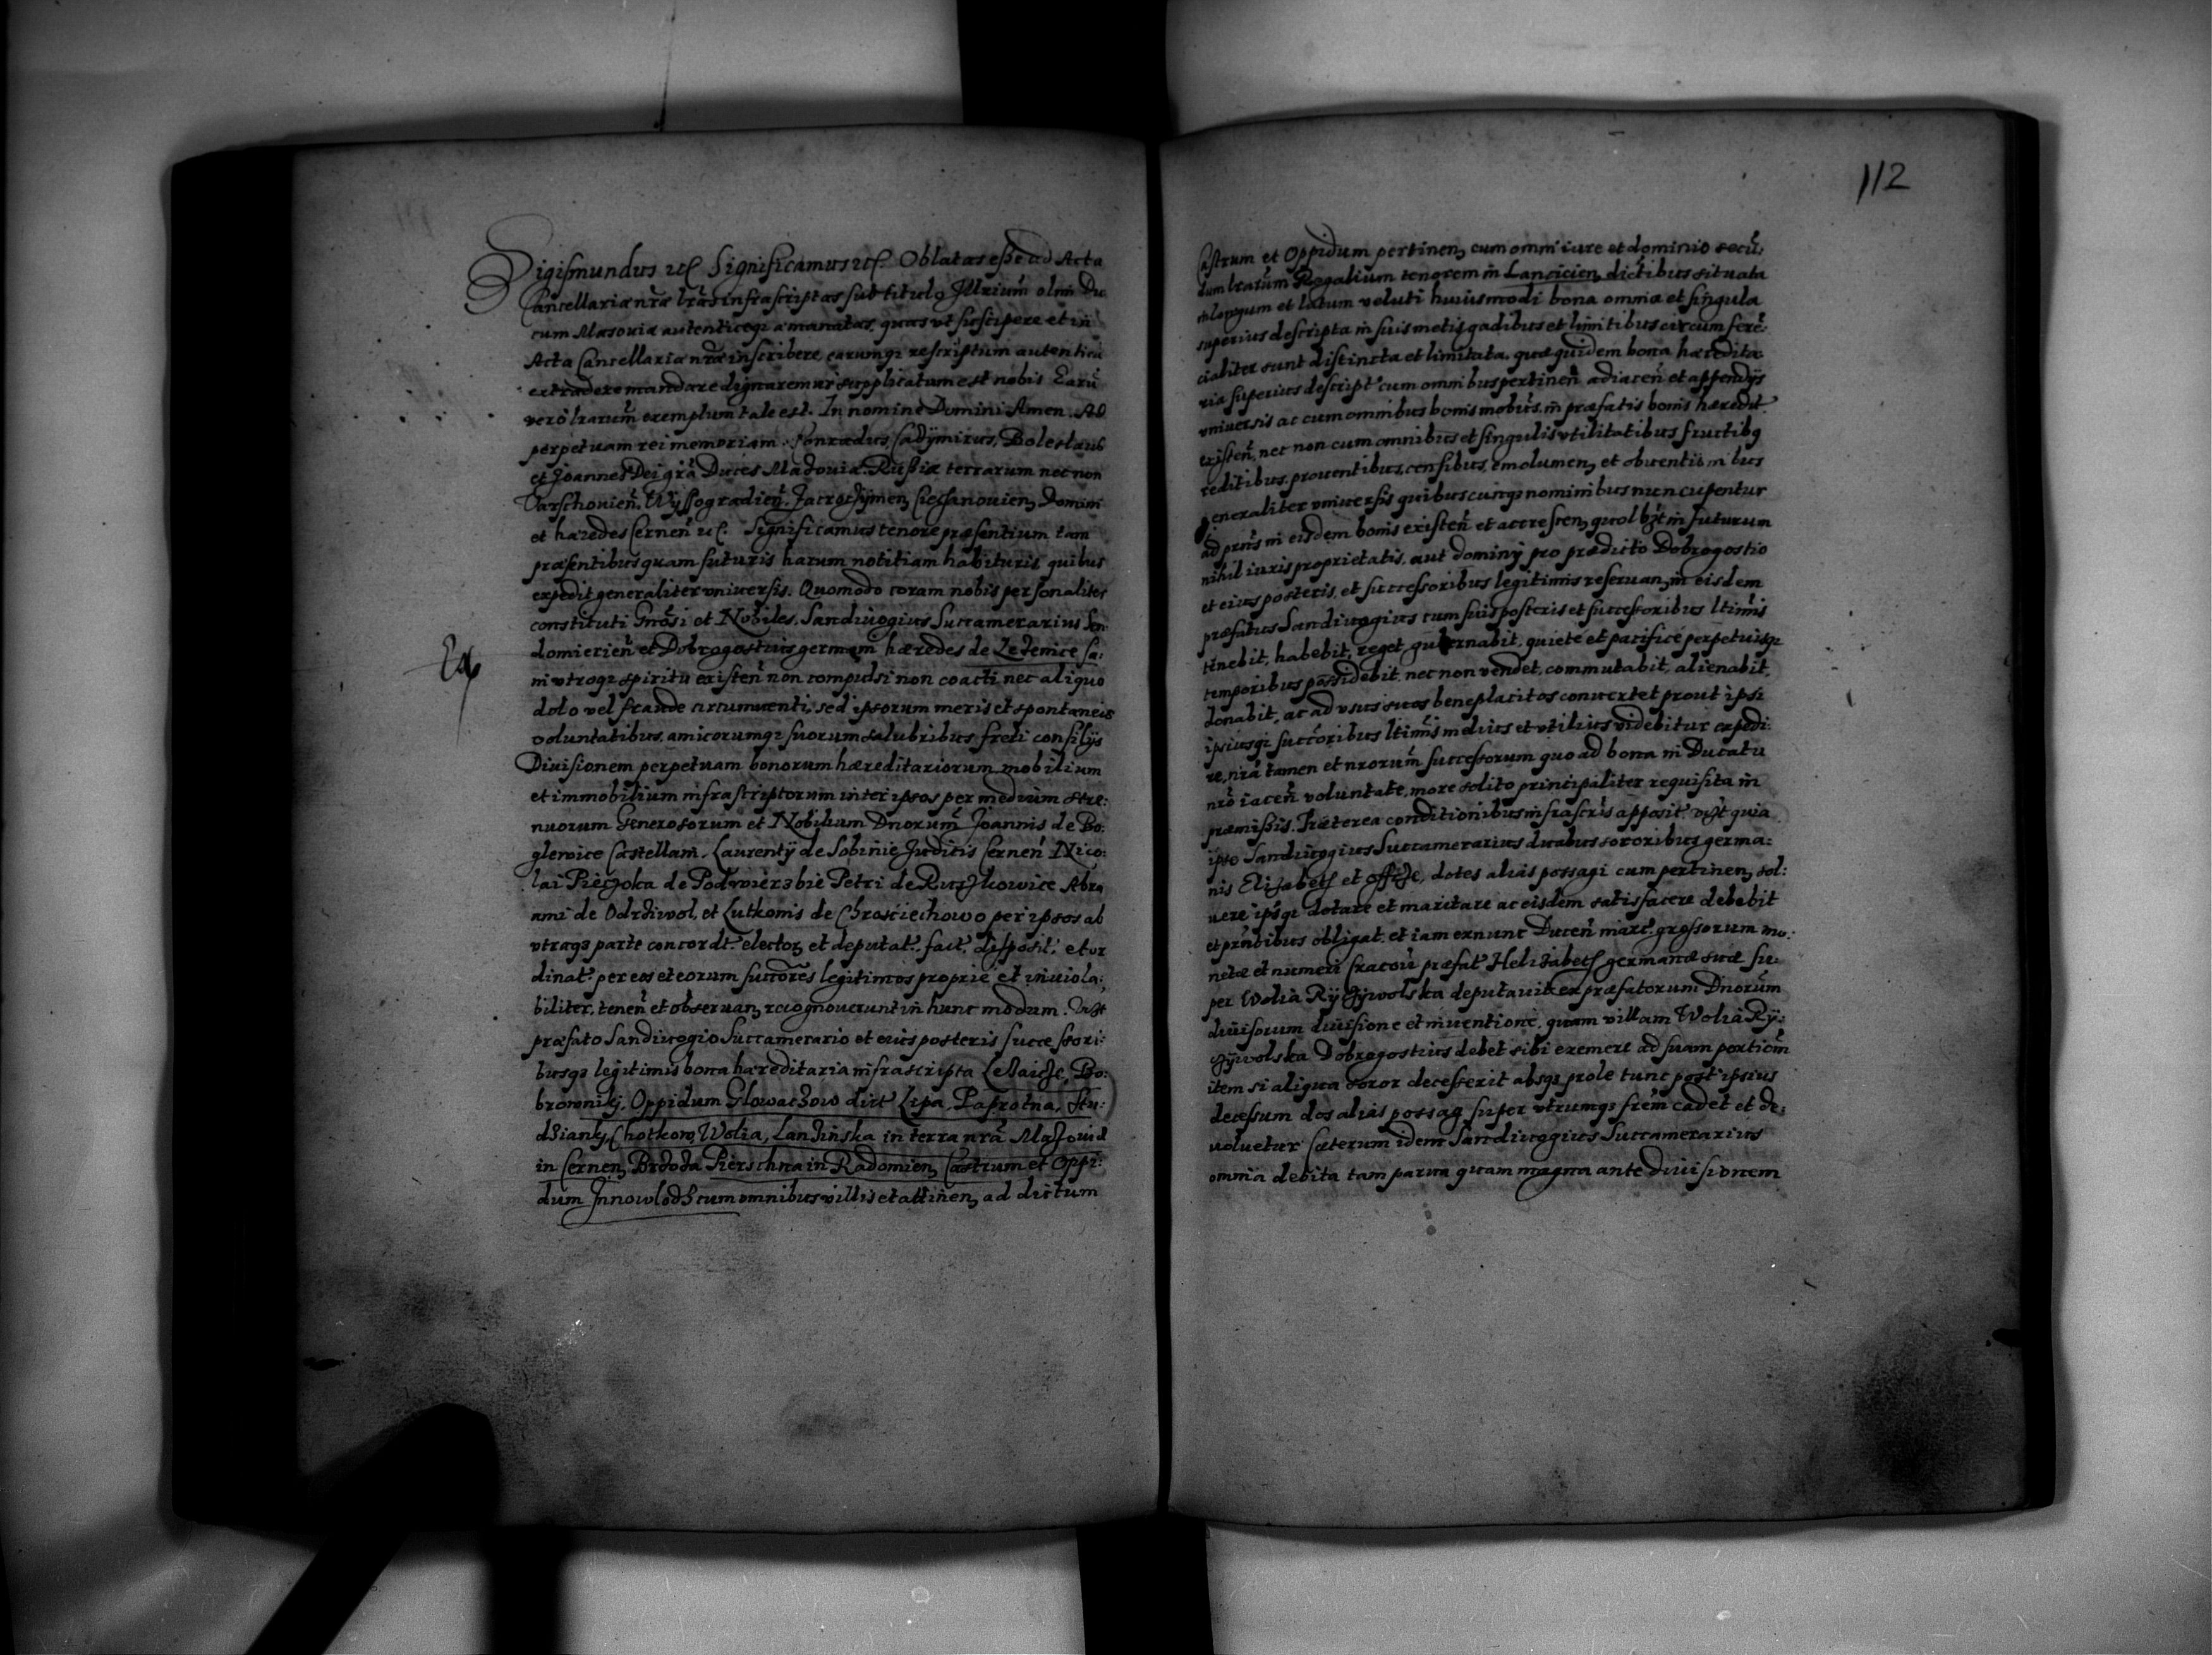 Sigismundus etc Significamus etc Oblatas esse ad Acta
Cancellariæ nræ lras infrascriptas sub titulo Illrium olim Du
cum Masoviæ autenticeqz amanatas, quas vt suscipere et in
Acta Cancellariæ nræ inscribere, earumqz rescriptum autenticũ
extradere mandare dignaremur supplicatum est nobis Earũ
verò lrarum̃ exemplum tale est. In nomine Domini Amen. Ad
perpetuam rei memoriam. Conradus Casÿmirus, Boleslaus
et Joannes Dei grã Duces Masoviæ Russiæ terrarum nec non
Varschovien̄. Wyssogradien̄. Zacroczÿmen, Ciechanovien, Domini
et hæredes Cernen̄ etc. Significamus tenore præsentium tam
præsentibus quam futuris harum notitiam habituris quibus
expedit generaliter vniuersis. Quomodo coram nobis personaliter
constituti Gnõsi et Nobiles, Sandiuogius Succamerarius Sen
domierien̄ et Dobrogostius germani hæredes de Lezenice sa:
ni vtroqz spiritu existen̄ non compulsi non coacti nec aliquo
dolo vel fraude circumuenti, sed ipsorum meris et spontaneis
voluntatibus, amicorumqz suorum salubribus freti consilÿs
Diuisionem perpetuam bonorum hæreditariorum mobilium
et immobilium infrascriptorum inter ipsos per medium stre:
nuorum Generosorum et Nobilium Dnorum̃ Joannis de Bo:
glewice Castellani. Laurentÿ de Sobinie Judicis Cernen̄ Nico:
lai Pieczoka de Podwierzbie Petri de Ruszkowice Abra
ami de Odrziwol, et Lutkonis de Chrosciechowo per ipsos ab
vtraqz parte concordt. elector, et deputat. fact. disposit. et or
dinat. per eos et eorum succõres legitimos propriè et inuiola:
biliter, tenen̄ et obseruan, recognouerunt in hunc modum. Vidzt
præfato Sandiuogio Succamerario et eius posteris successori:
busqz legitimis bona hæreditaria infrascripta Lezaicze, Bo:
browniki, Oppidum Glowaczow dict Lipa, Paprotna, Stu:
dzianki, Chotkow, Wolia, Lanzinska in terra nrã Mazouiæ
in Cernen, Brzoza Pierschna in Radomien, Castrum et Oppi:
dum Innowlodz cum omnibus villis et attinen, ad dictum
Ex
112
Castrum et Oppidum pertinen, cum omni iure et dominio secũ:
dum lrarum̃ Regalium tenorem in Lancicien, districtibus situata
in longum et latum veluti huiusmodi bona omnia et singula
superius descripta in suis metis gadibus et limitibus circumferẽ:
cialiter sunt distincta et limitata, quæquidem bona hæredita:
ria superius descript cum omnibus pertinen̄ adiacen̄ et appendÿs
vniuersis ac cum omnibus bonis mobilĩs, in præfatis bonis hæredit.
existen̄, nec non cum omnibus et singulis vtilitatibus fructibq
reditibus, prouentibus, censibus, emolumen, et obuentionibus
generaliter vniuersis quibuscunqz nominibus nuncupentur
ad prñs in eisdem bonis existen̄ et accrescen, quolbzt in futurum
nihil iuris proprietatis, aut dominÿ pro prædicto Dobrogostio
et eius posteris, et successoribus legitimis reseruan, in eisdem
præfatus Sandiuogius cum suis posteris et successoribus ltimis
tenebit, habebit, reget, gubernabit, quietè et pacificè perpetuisqz
temporibus possidebit, nec non vendet, commutabit, alienabit,
donabit, ac ad vsus suos beneplacitos conuertet prout ipsi
ipsiusqz succõribus ltimis melius et vtilius videbitur expedi:
re, nrã tamen et nrorum̃ successorum quo ad bona in Ducatu
nrõ iacen̄ voluntate, more solito principaliter requisita in
præmissis. Præterea conditionibus infrascris apposit. vidzt quia
ipse Sandiuogius Succamerarius duabus sororibus germa:
nis Elizabeth et Offize, dotes aliàs possagi cum pertinen, sol:
uere ipsisqz dotare et maritare ac eisdem satisfacere debebit
et prñtibus obligat. et iam exnunc Ducen̄ marc. grossorum mo:
netæ et numeri Cracoũ præfat Helizabeth germanæ suæ su:
per Wolia Rÿczÿwolska deputauit ex præfatorum Dnorum̃
diuisorum diuisione et inuentione, quam villam Wolia Rÿ:
czÿwolska Dobrogostius debet sibi exemere ad suam portiom̃
item si aliqua soror decesserit absqz prole tunc post ipsius
decessum dos aliàs possag super vtrumqz frem̃ cadet et de:
uoluetur Cæterum idem Sandiuogius Succamerarius
omnia debita tam parua quam magna ante diuisionem